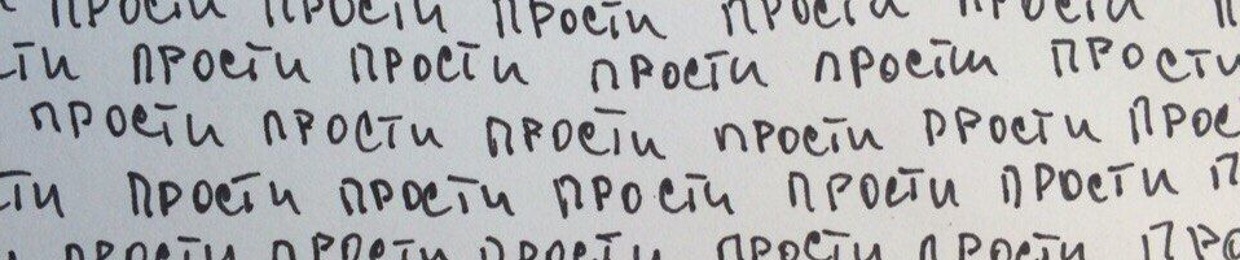 прости прости прости прости прости
ти прости прости прости прости прости
прости прости прости прости ррости прос
ти прости прости прости прости прости п
прости прости прости прости прости про